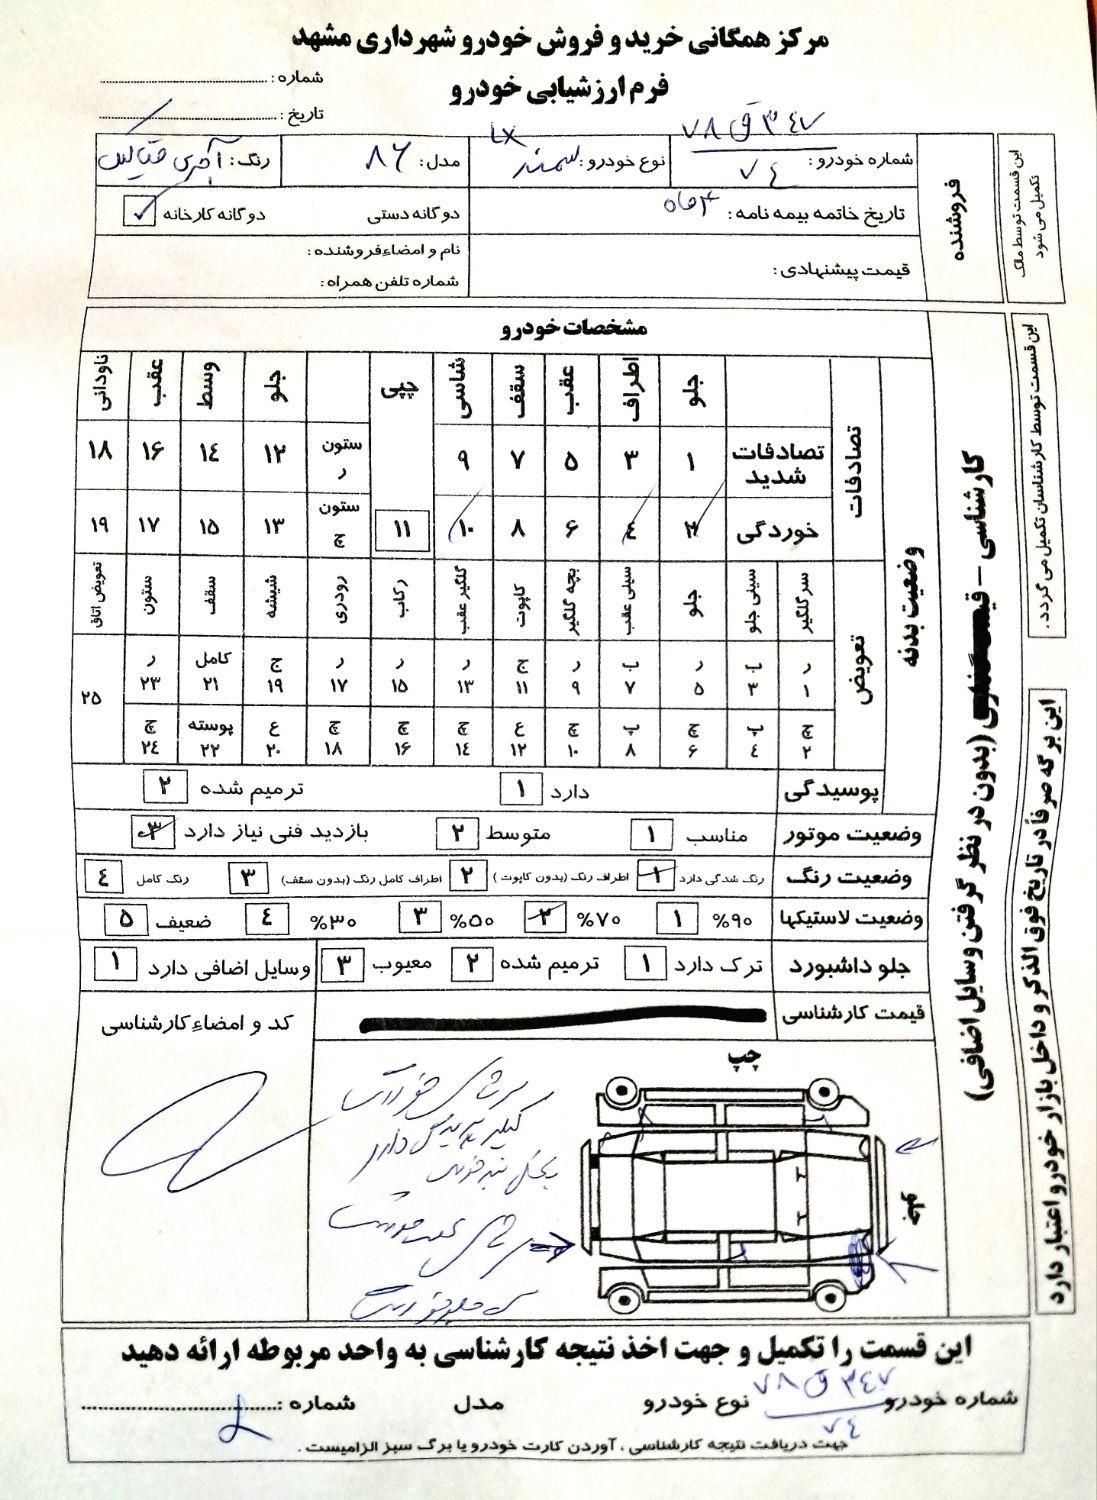 مرکز همگانی خرید و فروش خودرو شهرداری مشهد
فرم ارزشیابی خودرو
شماره :
تاریخ :
این قسمت توسط مالک تکمیل می شود
فروشنده
شماره خودرو : ۷۸ ق ۳۴۷ ۷۴
نوع خودرو : سمند LX
مدل : ۸۶
رنگ : آجری متالیک
تاریخ خاتمه بیمه نامه : ۴ ماه
دوگانه دستی
دوگانه کارخانه
قیمت پیشنهادی :
نام و امضاء فروشنده :
شماره تلفن همراه :
این قسمت توسط کارشناسان تکمیل می گردد .
کارشناسی - (بدون در نظر گرفتن وسایل اضافی)
این برگه صرفاً در تاریخ فوق الذکر و داخل بازار خودرو اعتبار دارد
مشخصات خودرو
وضعیت بدنه
تصادفات
جلو اطراف عقب سقف شاسی چپی جلو وسط عقب ناودانی
تصادفات شدید ۱ ۳ ۵ ۷ ۹ ستون ر ۱۲ ۱۴ ۱۶ ۱۸
خوردگی ۲ ۴ ۶ ۸ ۱۰ ۱۱ ستون چ ۱۳ ۱۵ ۱۷ ۱۹
تعویض
سرگلگیر سینی جلو جلو سینی عقب بچه گلگیر کاپوت گلگیر عقب رکاب رودری شیشه سقف ستون تعویض اتاق
ر ۱ ب ۳ ر ۵ ب ۷ ر ۹ چ ۱۱ ر ۱۳ ر ۱۵ ر ۱۷ ج ۱۹ کامل ۲۱ ر ۲۳ ۲۵
چ ۲ پ ۴ چ ۶ پ ۸ چ ۱۰ ع ۱۲ چ ۱۴ چ ۱۶ چ ۱۸ ع ۲۰ پوسته ۲۲ چ ۲۴
پوسیدگی دارد ۱ ترمیم شده ۲
وضعیت موتور مناسب ۱ متوسط ۲ بازدید فنی نیاز دارد ۳
وضعیت رنگ رنگ شدگی دارد ۱ اطراف رنگ (بدون کاپوت) ۲ اطراف کامل رنگ (بدون سقف) ۳ رنگ کامل ۴
وضعیت لاستیکها ۹۰% ۱ ۷۰% ۲ ۵۰% ۳ ۳۰% ۴ ضعیف ۵
جلو داشبورد ترک دارد ۱ ترمیم شده ۲ معیوب ۳ وسایل اضافی دارد ۱
قیمت کارشناسی
کد و امضاء کارشناسی
چپ
این قسمت را تکمیل و جهت اخذ نتیجه کارشناسی به واحد مربوطه ارائه دهید
شماره خودرو ۷۸ ق ۳۴۷ ۷۴ نوع خودرو مدل شماره :
جهت دریافت نتیجه کارشناسی ، آوردن کارت خودرو یا برگ سبز الزامیست .